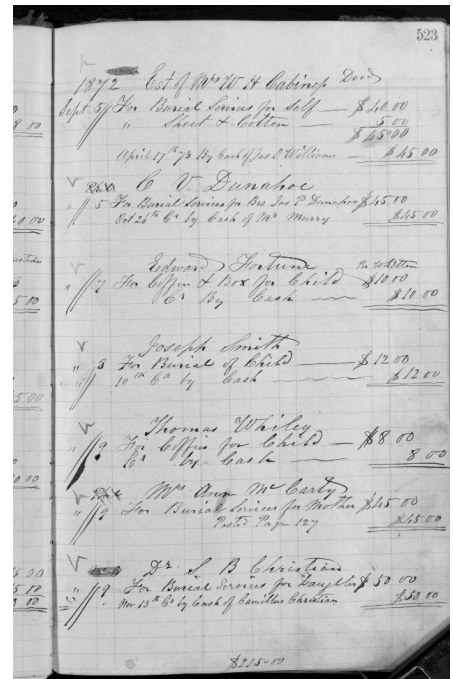 523
1872 Est of Mrs W H Cabinys Decd
Sept 5 For Burial Services for Self — $40.00
" Sheet & Cotton — 5.00
$45.00
April 17th 73 By Cash of Jas D Williams — $45.00
C V Dunahoe
" 5 For Burial Services for Bro Jas P Dunahoe $45.00
Oct 26th Cr by Cash of Mr Murry $45.00
Edward Fortune Per Whitten
" 7 For Coffin & Box for Child $10.00
Cr By Cash — $10.00
Joseph Smith
" 8 For Burial of Child — $12.00
" 10th Cr by Cash — $12.00
Thomas Whiley
" 9 For Coffin for Child — $8.00
Cr by Cash — 8.00
Mrs Ann McCarty
" 9 For Burial Services for Mother $45.00
Posted Page 127 $45.00
Dr S B Christian
" 9 For Burial Services for Daughter $50.00
Nov 13th Cr by Cash of Camillus Christian $50.00
$215.00